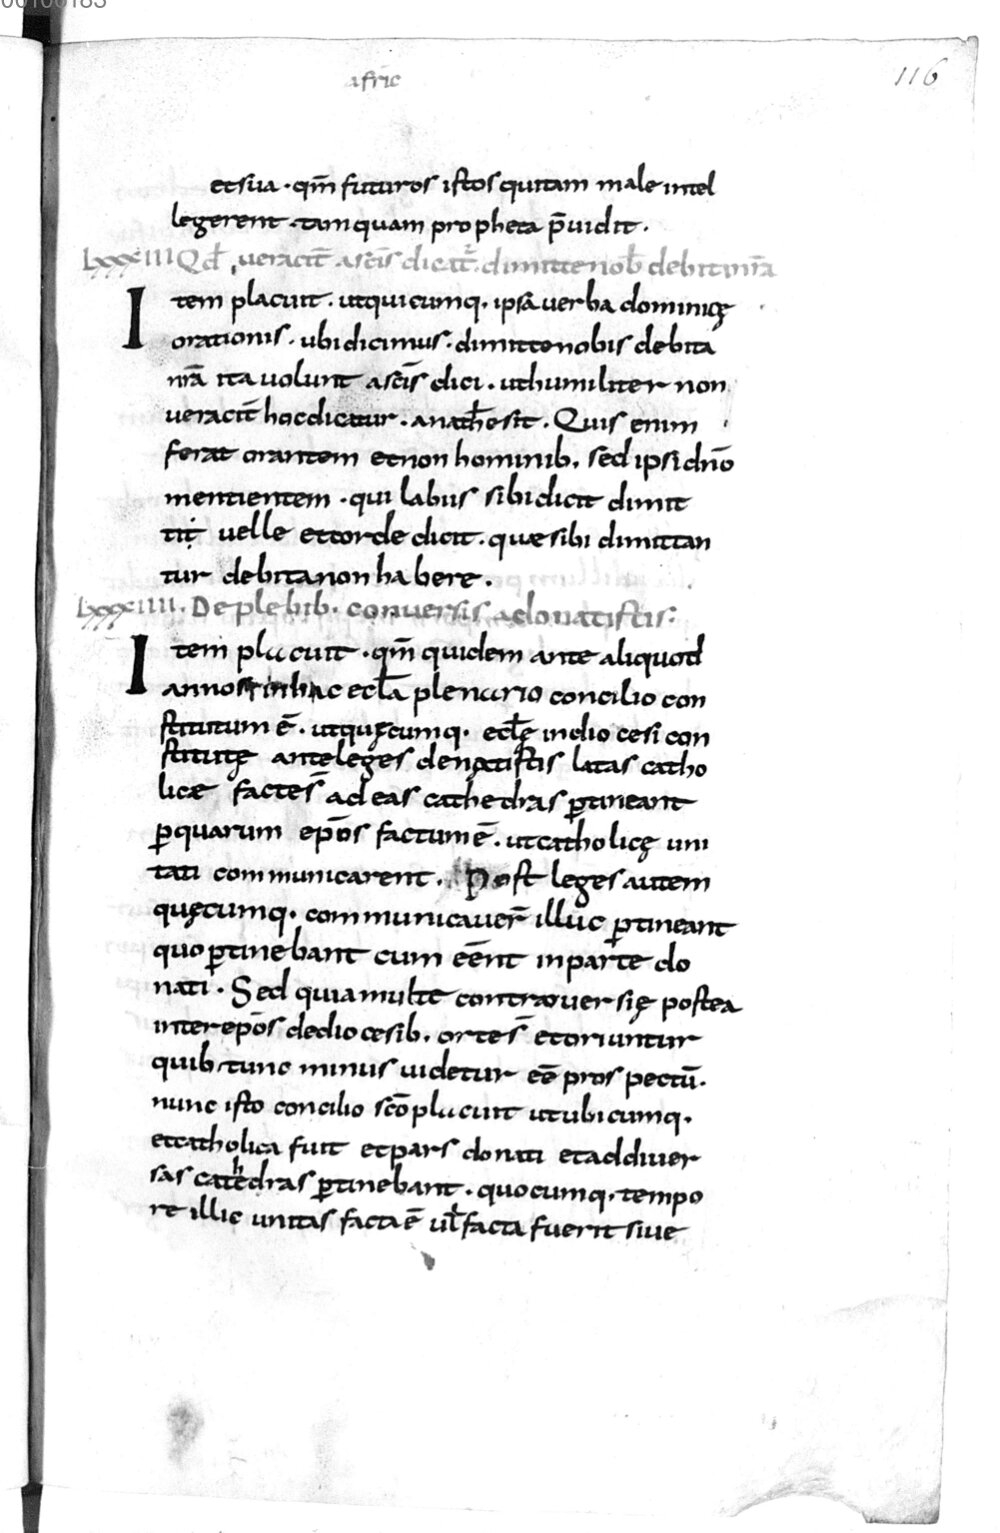 00100183
afric
116
et sua · qm̄ futuros istos qui tam male intel
legerent · tamquam propheta p̄uidit ·
LXXXIII Qd̄ ueracit̄ · a sc̄is dicat̄ · dimitte nob̄ debita nr̄a
Item placuit · ut quicumq· ipsa uerba dominicę
orationis · ubi dicimus · dimitte nobis debita
nr̄a ita uolunt a sc̄is dici · ut humiliter non
ueracit̄ hoc dicatur · anath̄ sit · Quis enim
ferat orantem et non hominib· sed ipsi dn̄o
mentientem · qui labiis sibi dicit dimit
tit uelle et corde dicit · quæ sibi dimittan
tur debita non habere ·
LXXXIIII · De plebib· conversis a donatistis :
Item placuit · qm̄ quidem ante aliquod
annos in hac eccl̄a plenario concilio con
stitutum ē · ut quęcumq· eccl̄ę in diocesi con
stitutę ante leges de natistis latas catho
licæ factes̄ ad eas cathedras ꝑtineant
ꝑ quarum ep̄os factum ē · ut catholicę uni
tati communicarent · Post leges autem
quęcumq· communicauer̄ illuc ꝑtineant
quo ꝑtinebant cum eēnt in parte do
nati · Sed quia multe controuersię postea
inter ep̄os de diocesib· ortes̄ et oriuntur
quib· tunc minus uidetur eē prospectū ·
nunc isto concilio sc̄o placuit ut ubicumq·
et catholica fuit et pars donati et ad diuer
sas cathedras ꝑtinebant · quocumq· tempo
re illic unitas facta ē ul̄ facta fuerit siue